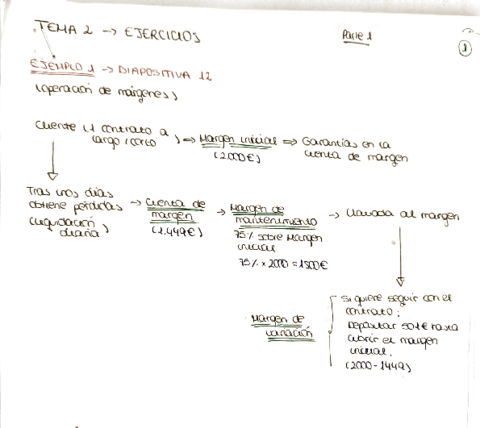 TEMA 2 → EJERCICIOS
Parte 1
1
EJEMPLO 1 → DIAPOSITIVA 12
(operación de márgenes)
Cliente (1 contrato a largo/corto) ⇒ Margen inicial ⇒ Garantías en la cuenta de margen
(2.000€)
Tras unos días
obtiene pérdidas
(liquidación
diaria)
→ Cuenta de
margen
(1.449€)
→ Margen de
mantenimiento
75% sobre Margen
inicial
75% × 2000 = 1500€
→ Llamada al margen
Margen de
variación
Si quiere seguir con el
contrato:
Depositar 501€ hasta
cubrir el margen
inicial.
(2000-1449)